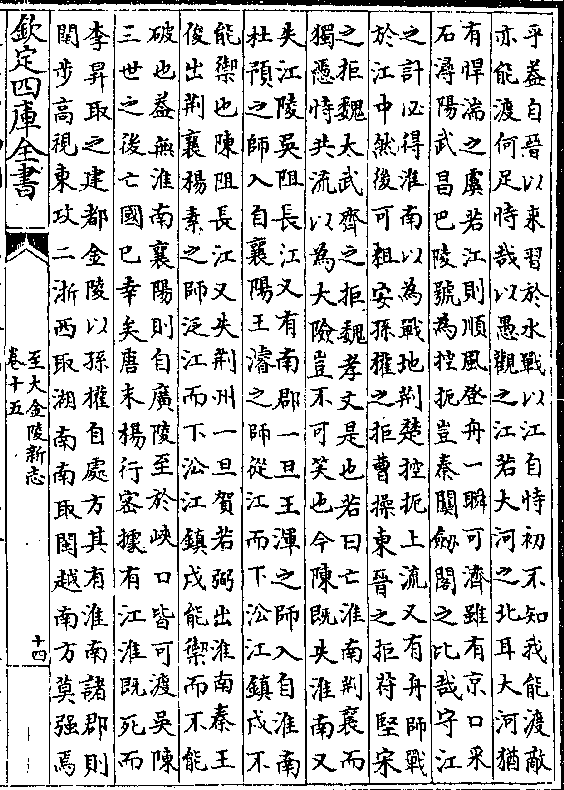 乎葢自晉以來習於水戰以江自恃初不知我能渡敵
亦能渡何足恃哉以愚觀之江若大河之北耳大河猶
有悍湍之虞若江則順風登舟一瞬可濟雖有京口采
石潯陽武昌巴陵號為控扼豈秦關劔閣之比哉守江
之計必得淮南以為戰地荆楚控扼上流又有舟師戰
於江中然後可粗安孫權之拒曹操東晉之拒苻堅宋
之拒魏太武齊之拒魏孝文是也若曰亡淮南荆襄而
獨慿恃共流以為大險豈不可笑也今陳既失淮南又
失江陵吳阻長江又有南郡一旦王渾之師入自淮南
杜預之師入自襄陽王濬之師從江而下㳂江鎮戍不
能禦也陳阻長江又失荆州一旦賀若弼出淮南秦王
俊出荆襄楊素之師泛江而下㳂江鎮戍能禦而不能
破也葢無淮南襄陽則自廣陵至於峽口皆可渡吳陳
三世之後亡國已幸矣唐末楊行密據有江淮既死而
李昇取之建都金陵以孫權自處方其有淮南諸郡則
闊步高視東攻二浙西取湖南南取閩越南方莫强焉
欽定四庫全書
至大金陵新志
卷十五
十四